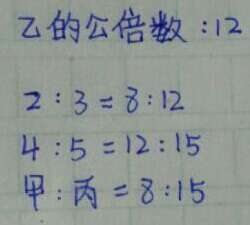 乙的公倍数:12
2:3=8:12
4:5=12:15
甲:丙=8:15